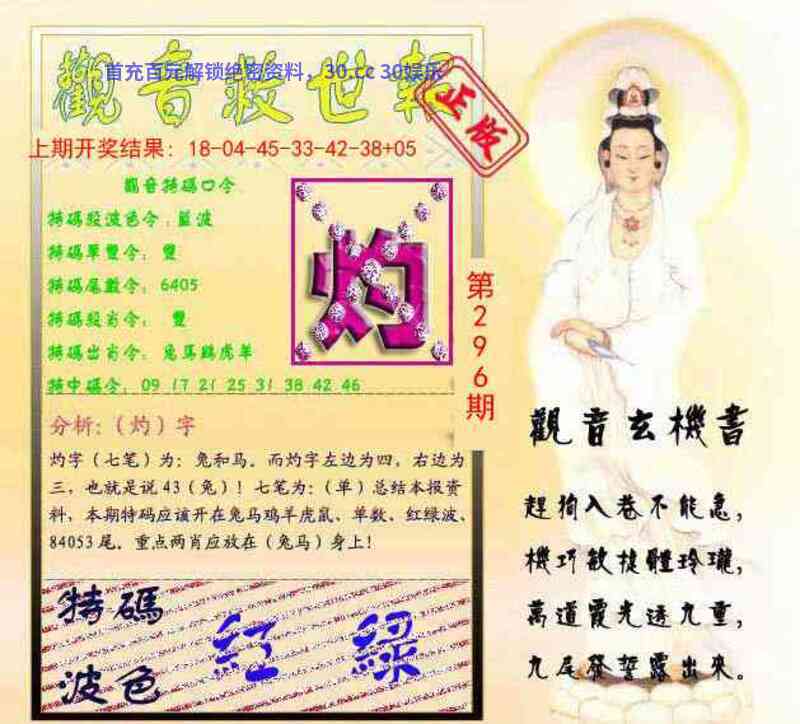 觀音救世報
首充百元解锁绝密资料，30.cc 30娱乐
正版
上期开奖结果：18-04-45-33-42-38+05
觀音特碼口令
特碼段波色令：藍波
特碼單雙令： 雙
特碼尾數令：6405
特碼段肖令： 雙
特碼出肖令：兔马鷄虎羊
特中碼令：09 17 21 25 31 38 42 46
灼
第296期
分析：（灼）字
灼字（七笔）为：兔和马。而灼字左边为四，右边为
三，也就是说43（兔）！七笔为：（单）总结本报资
料，本期特码应该开在兔马鸡羊虎鼠、单数。红绿波、
84053尾。重点两肖应放在（兔马）身上！
特碼
波色
紅 綠
觀音玄機書
趕狗入巷不能急，
機巧敏捷體玲瓏，
萬道霞光透九重，
九尾發誓露出來。